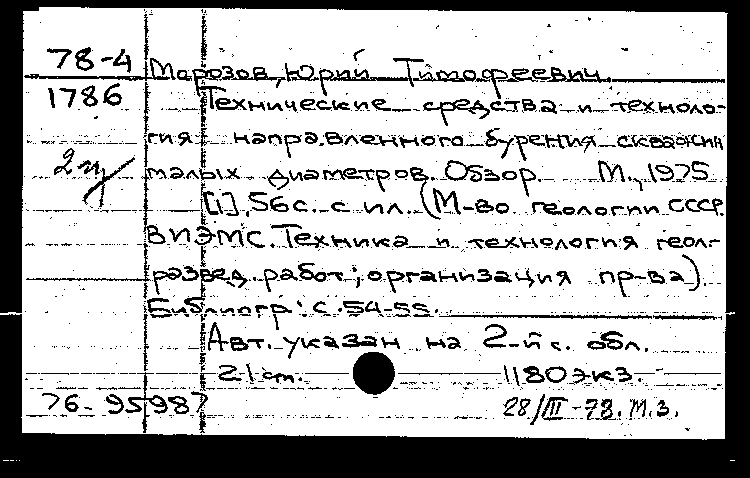 78-4 Марозов, Юрий Тимофеевич.
1786 Технические средства и техноло-
гия направленного бурения скважин
2 щ малых диаметров. Обзор. М., 1975
[1], 56 с. с ил. (М-во геологии СССР.
ВИЭМС. Техника и технология геол.-
развед. работ; организация пр-ва).
Библиогр: с. 54-55.
Авт. указан на 2-й с. обл.
21 cm. 1180 экз.
76-95987 28/III-78. М.З.